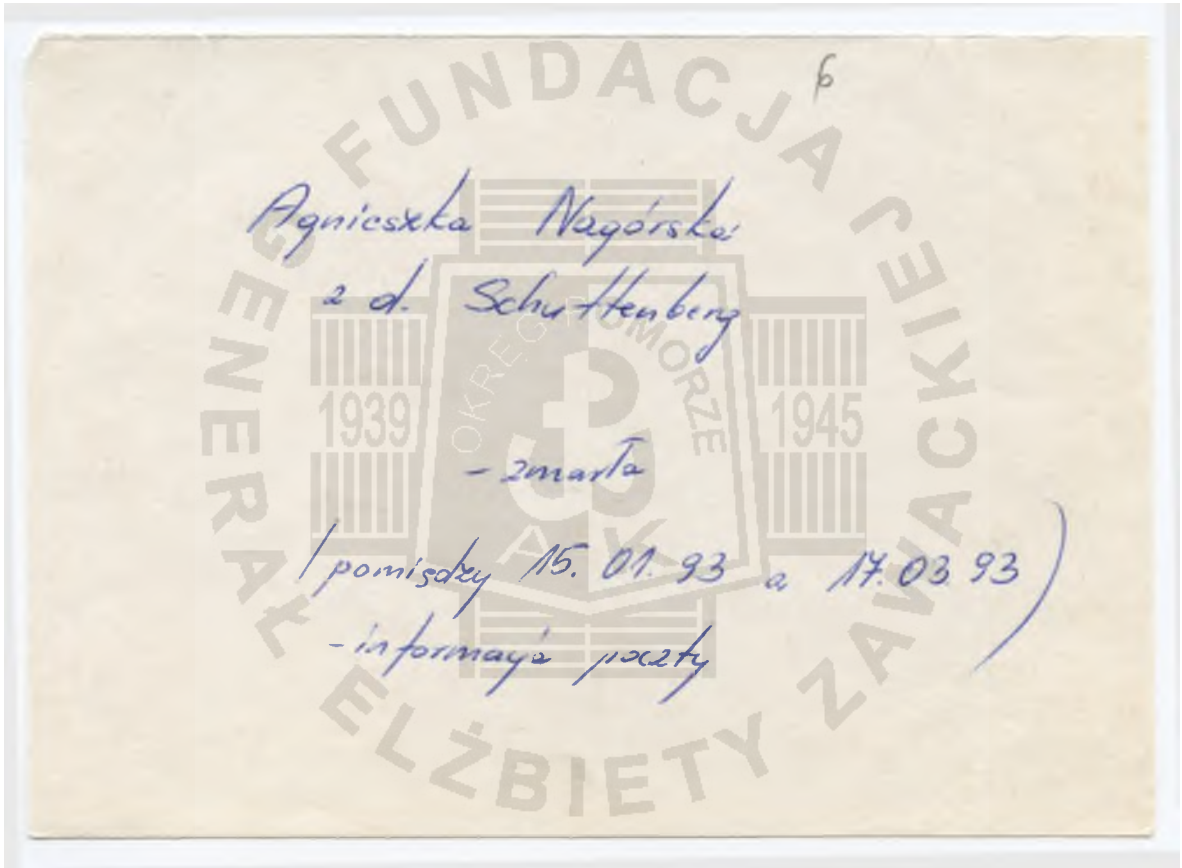 6
Agnieszka Nagórska
z d. Schuttenberg
- zmarła
(pomiędzy 15.01.93 a 17.03 93)
- informacja poczty
FUNDACJA JEJ
GENERAŁ ELŻBIETY ZAWACKIEJ
OKRĘG POMORZE
1939
1945
AK